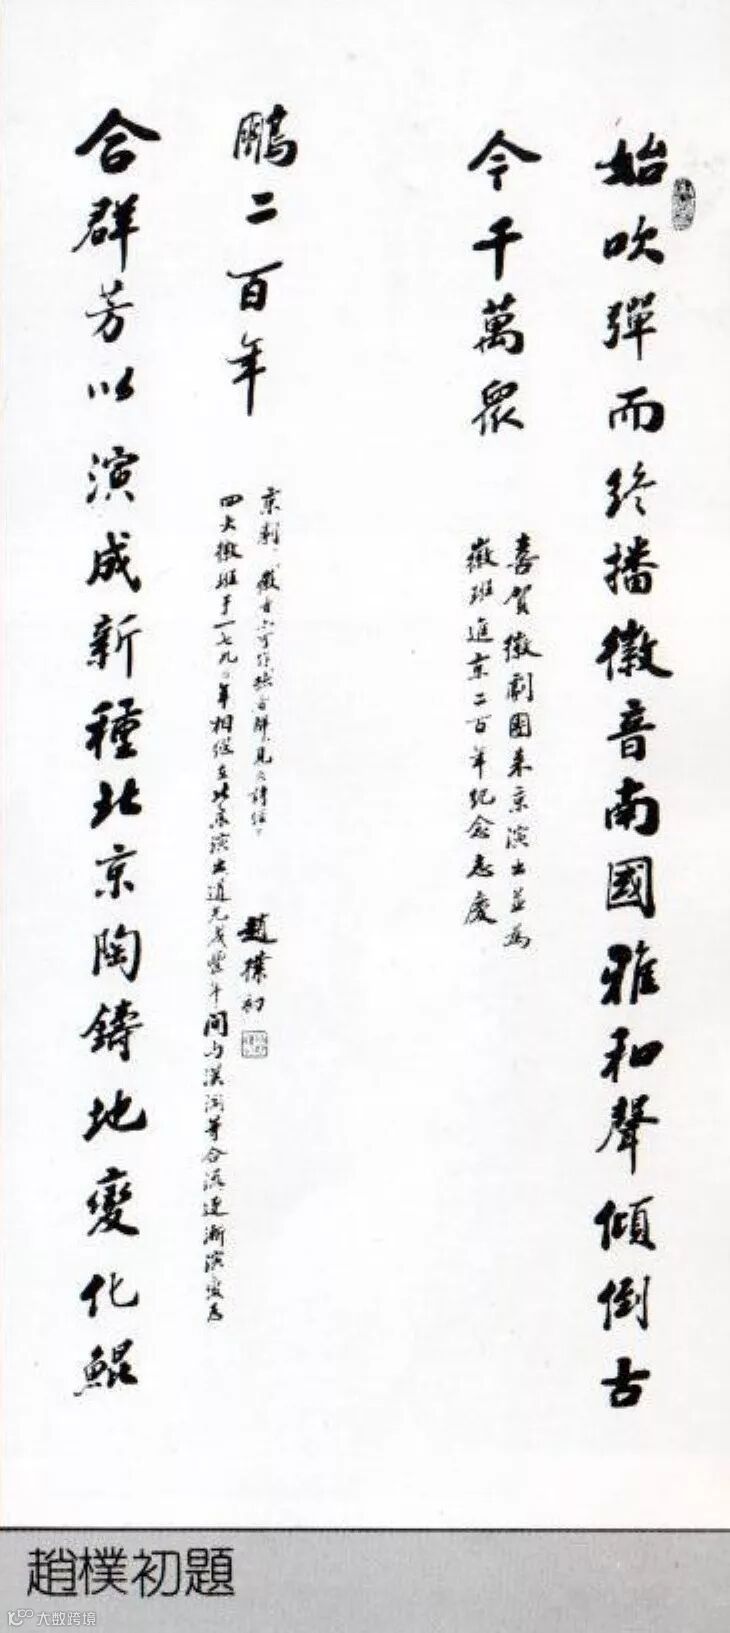 始吹彈而終播徽音南國雅和聲傾倒古
今千萬衆
喜賀徽劇團来京演出並為
徽班進京二百年纪念志慶
合群芳以演成新種北京陶鑄地變化鯤
鵬二百年
四大徽班于一七九〇年相继在北京演出道光咸豐年間与漢調等合流逐漸演變为
京劇 徽音 解見《詩经》
趙樸初
趙樸初題
大数跨境